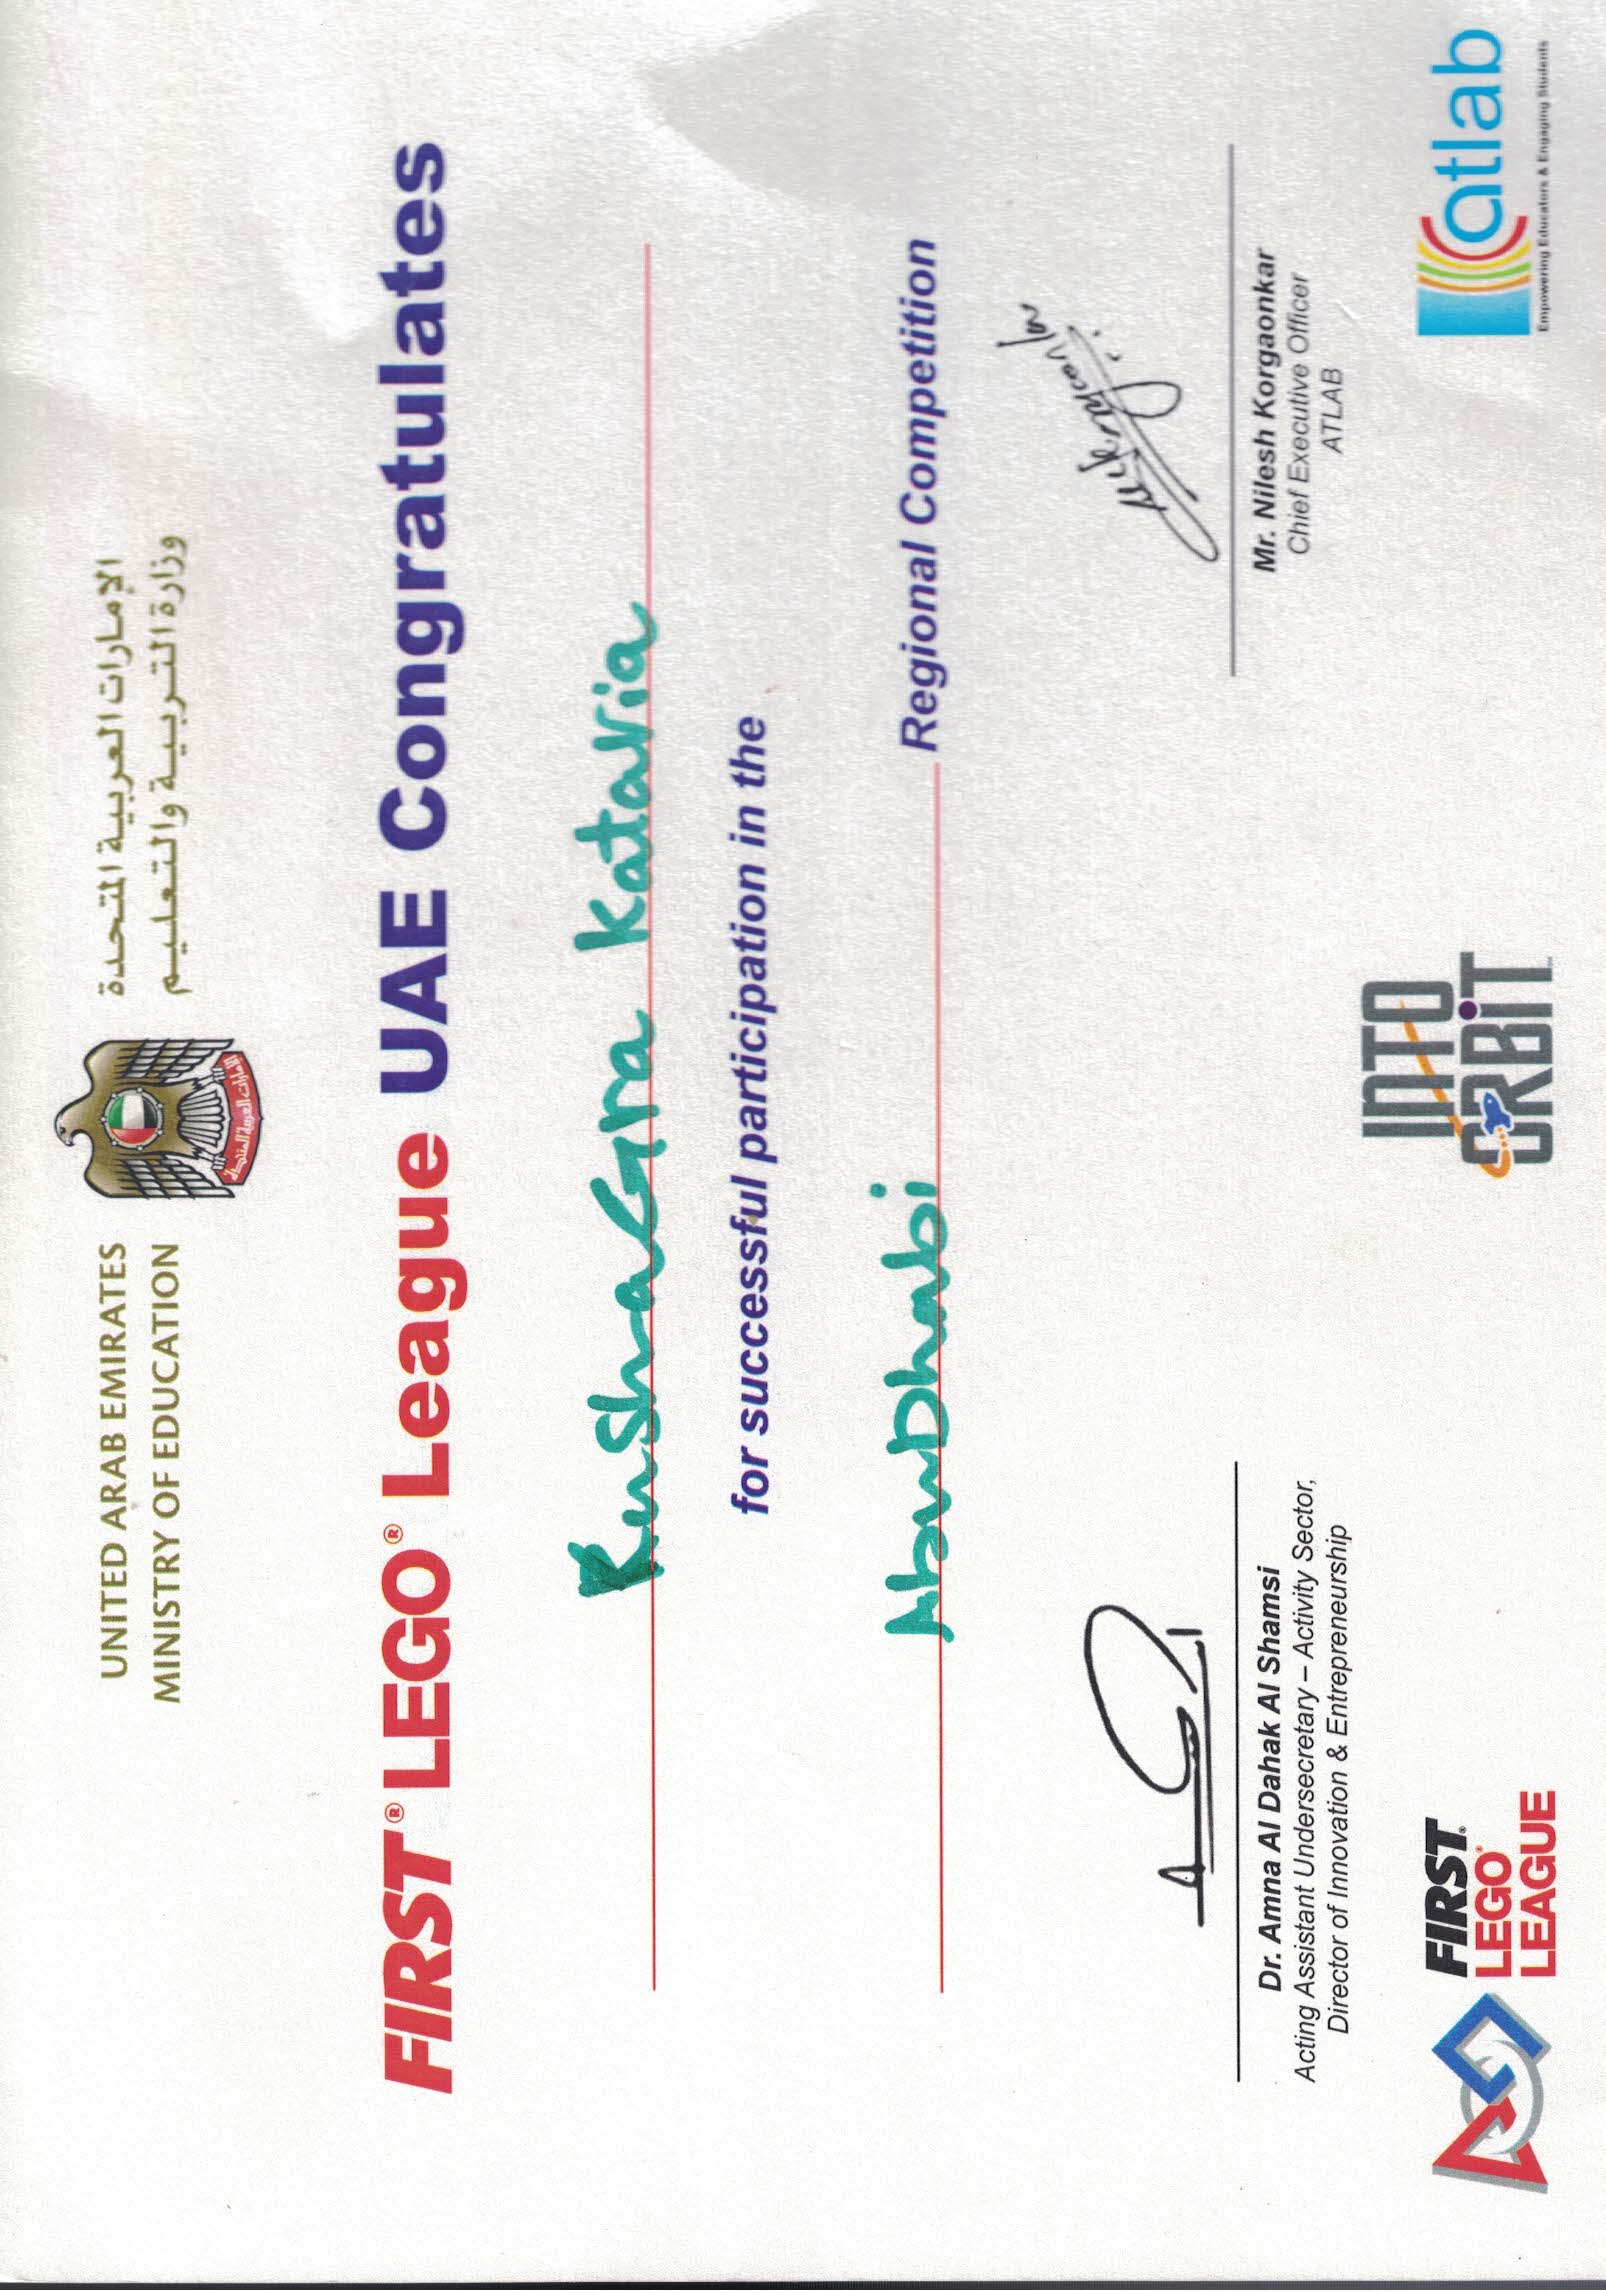 UNITED ARAB EMIRATES
MINISTRY OF EDUCATION
الإمارات العربية المتحدة
وزارة التربية والتعليم
الإمارات العربية المتحدة
FIRST® LEGO® League UAE Congratulates
KushaGra Kataria
for successful participation in the
AbuDhabi Regional Competition
Dr. Amna Al Dahak Al Shamsi
Acting Assistant Undersecretary – Activity Sector,
Director of Innovation & Entrepreneurship
Mr. Nilesh Korgaonkar
Chief Executive Officer
ATLAB
FIRST®
LEGO®
LEAGUE
INTO
ORBIT™
atlab
Empowering Educators & Engaging Students